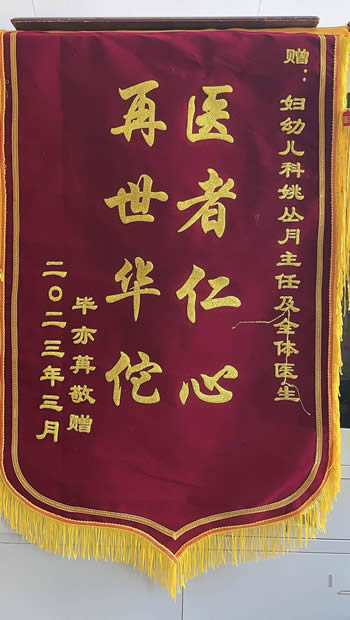 赠：妇幼儿科姚丛月主任及全体医生
医者仁心
再世华佗
毕亦苒敬赠
二〇二三年三月